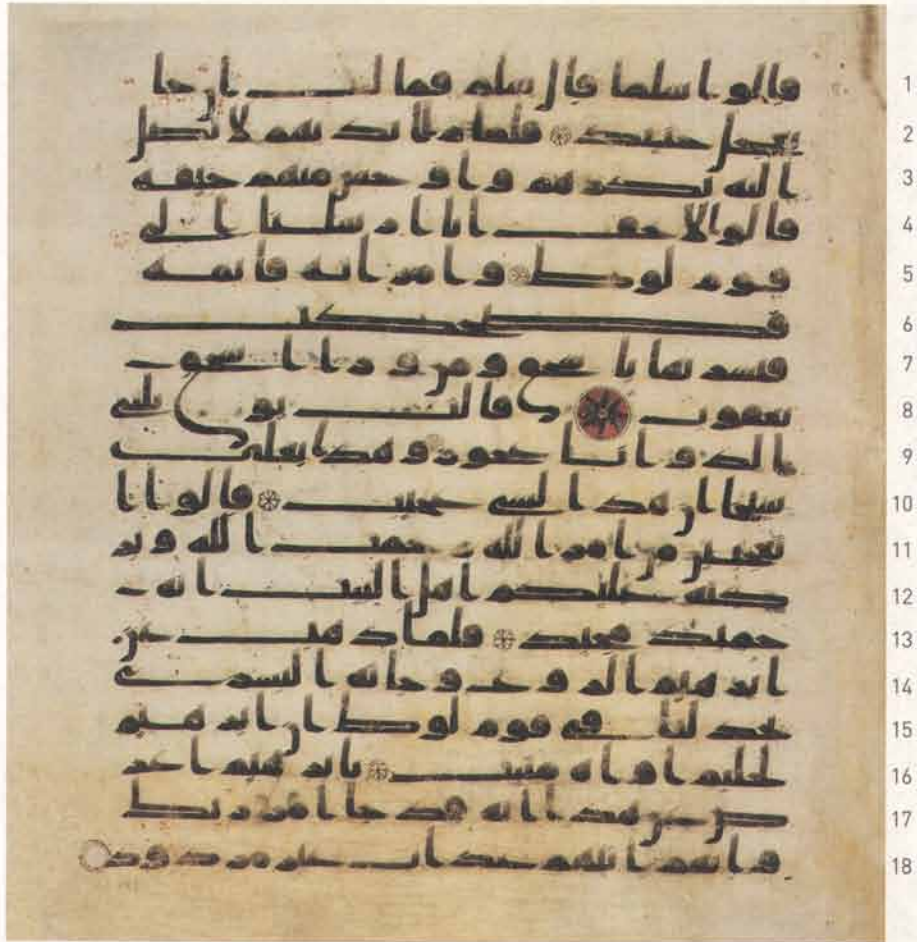 1 قالوا سلما قال سلم فما لبث ان جا
2 بعجل حنيذ فلما را ايديهم لا تصل
3 اليه نكرهم واوجس منهم خيفه
4 قالوا لا تخف انا ارسلنا الى
5 قوم لوط وامراته قائمه
6 فضحكت
7 فبشرنها باسحق ومن ورا اسحق
8 يعقوب قالت يويلتى
9 الد وانا عجوز وهذا بعلى
10 شيخا ان هذا لشى عجيب قالوا ا
11 تعجبين من امر الله رحمت الله وبر
12 كته عليكم اهل البيت انه
13 حميد مجيد فلما ذهب عن
14 ابرهيم الروع وجاته البشرى
15 يجدلنا فى قوم لوط ان ابرهيم
16 لحليم اوه منيب يابرهيم اعر
17 ض عن هذا انه قد جا امر ربك
18 وانهم اتيهم عذاب غير مردود